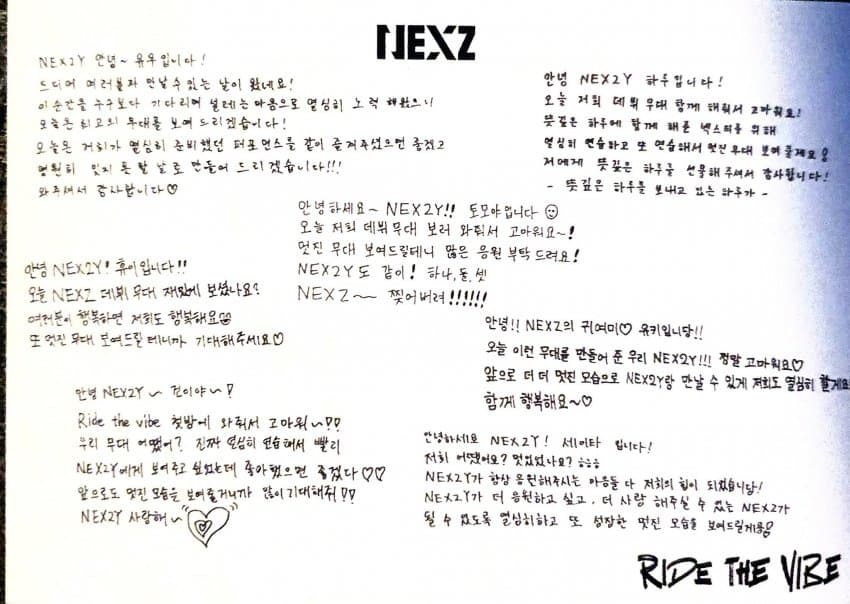 NEXZ
NEX2Y 안녕~ 유우입니다!
드디어 여러분과 만날 수 있는 날이 왔네요!
이 순간을 누구보다 기다리며 설레는 마음으로 열심히 노력해왔으니
오늘은 최고의 무대를 보여 드리겠습니다!
오늘은 저희가 열심히 준비했던 퍼포먼스를 같이 즐겨주셨으면 좋겠고
영원히 잊지 못할 날로 만들어 드리겠습니다!!!
와주셔서 감사합니다♡
안녕 NEX2Y 하루입니다!
오늘 저희 데뷔 무대 함께 해줘서 고마워요!
뜻깊은 하루에 함께 해준 넥스티를 위해
열심히 연습하고 또 연습해서 멋진 무대 보여줄게요
저에게 뜻깊은 하루를 선물해 주셔서 감사합니다!
- 뜻깊은 하루를 보내고 있는 하루가 -
안녕하세요~ NEX2Y!! 토모야입니다☺
오늘 저희 데뷔무대 보러 와줘서 고마워요~!
멋진 무대 보여드릴테니 많은 응원 부탁 드려요!
NEX2Y도 같이! 하나, 둘, 셋
NEXZ~~ 찢어버려!!!!!!
안녕 NEX2Y! 휴이입니다!!
오늘 NEXZ 데뷔 무대 재밌게 보셨나요?
여러분이 행복하면 저희도 행복해요
또 멋진 무대 보여드릴테니까 기대해주세요♡
안녕!! NEXZ의 귀여미♡ 유키입니당!!
오늘 이런 무대를 만들어 준 우리 NEX2Y!!! 정말 고마워요♡
앞으로 더 더 멋진 모습으로 NEX2Y랑 만날 수 있게 저희도 열심히 할게요!
함께 행복해요~♡
안녕 NEX2Y ~ 건이야~!
Ride the vibe 첫방에 와줘서 고마워~!!
우리 무대 어땠어? 진짜 열심히 연습해서 빨리
NEX2Y에게 보여주고 싶었는데 좋아했으면 좋겠다♡♡
앞으로도 멋진 모습을 보여줄거니까 많이 기대해줘!!
NEX2Y 사랑해~
안녕하세요 NEX2Y! 세이타 입니다!
저희 어땠어요? 멋있었나요? ㅎㅎㅎ
NEX2Y가 항상 응원해주시는 마음들 다 저희의 힘이 되었습니당!
NEX2Y가 더 응원하고 싶고, 더 사랑 해주실 수 있는 NEXZ가
될 수 있도록 열심히하고 또 성장한 멋진 모습을 보여드릴게용
RIDE THE VIBE